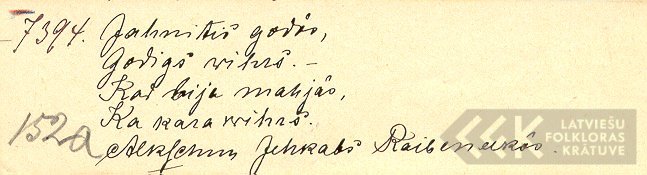 7394. Jahnitis godâs,
Godigs wihrs. –
Kad bija mahjâs,
Ka kara wihrs.
152a
Alkschnu Jehkabs Raibenekôs.
LATVIEŠU
FOLKLORAS
KRĀTUVE